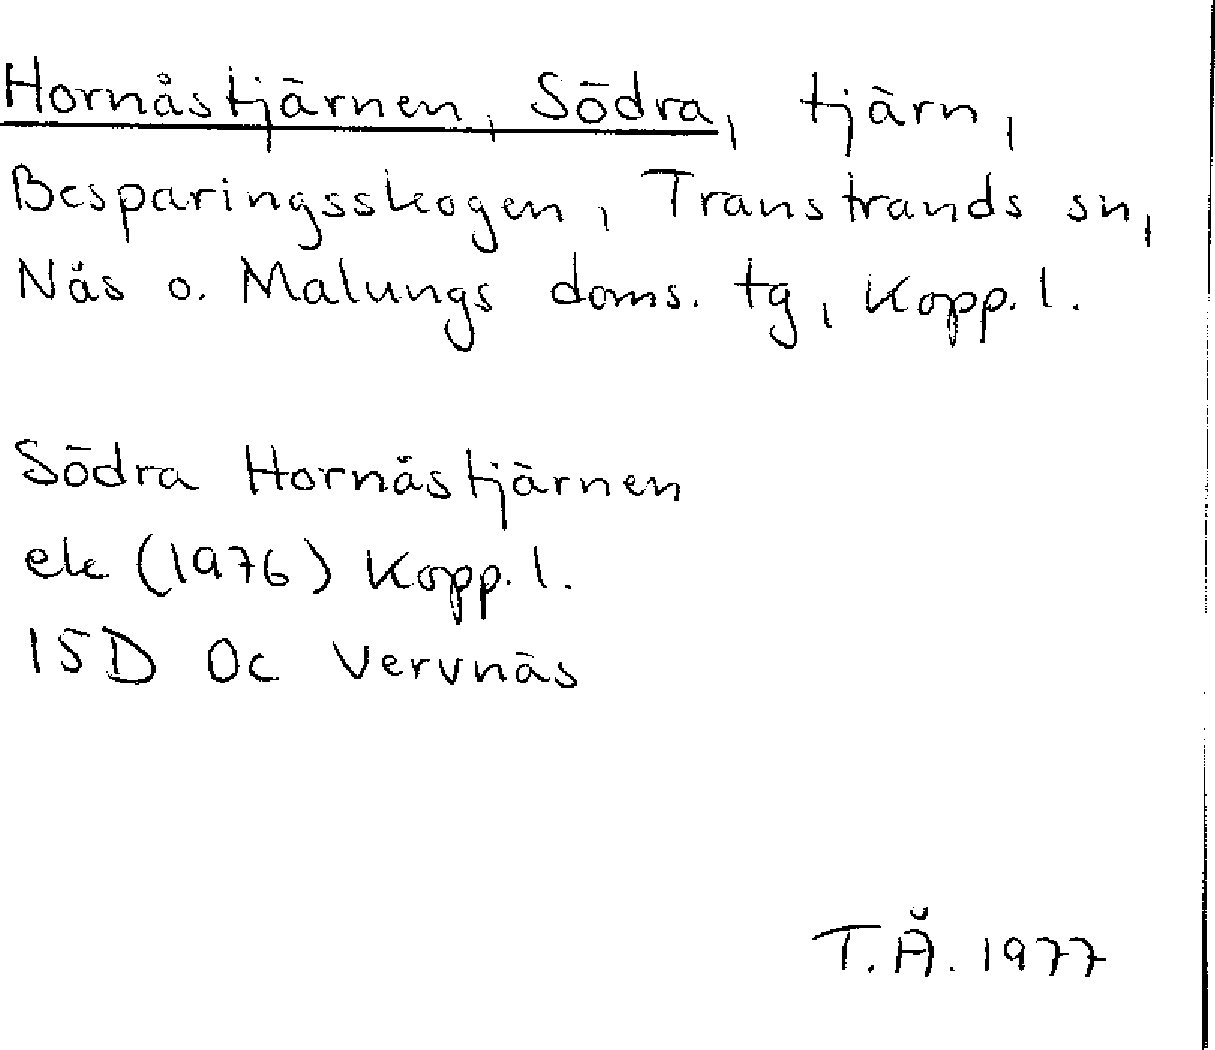 Hornåstjärnen, Södra, tjärn,
Besparingsskogen, Transtrands sn,
Nås o. Malungs doms. tg, Kopp. l.
Södra Hornåstjärnen
ek (1976) Kopp. l.
15D 0c Vervnäs
T.Å. 1977